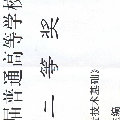 届普通高等学校
二等奖
技术基础》